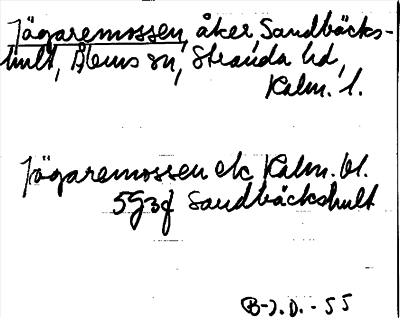 Jägaremossen, åker, Sandbäcks-
hult, Ålems sn, Stranda hd,
Kalm. l.
Jägaremossen ek Kalm. bl.
5g3f Sandbäckshult
B-J.D.-55